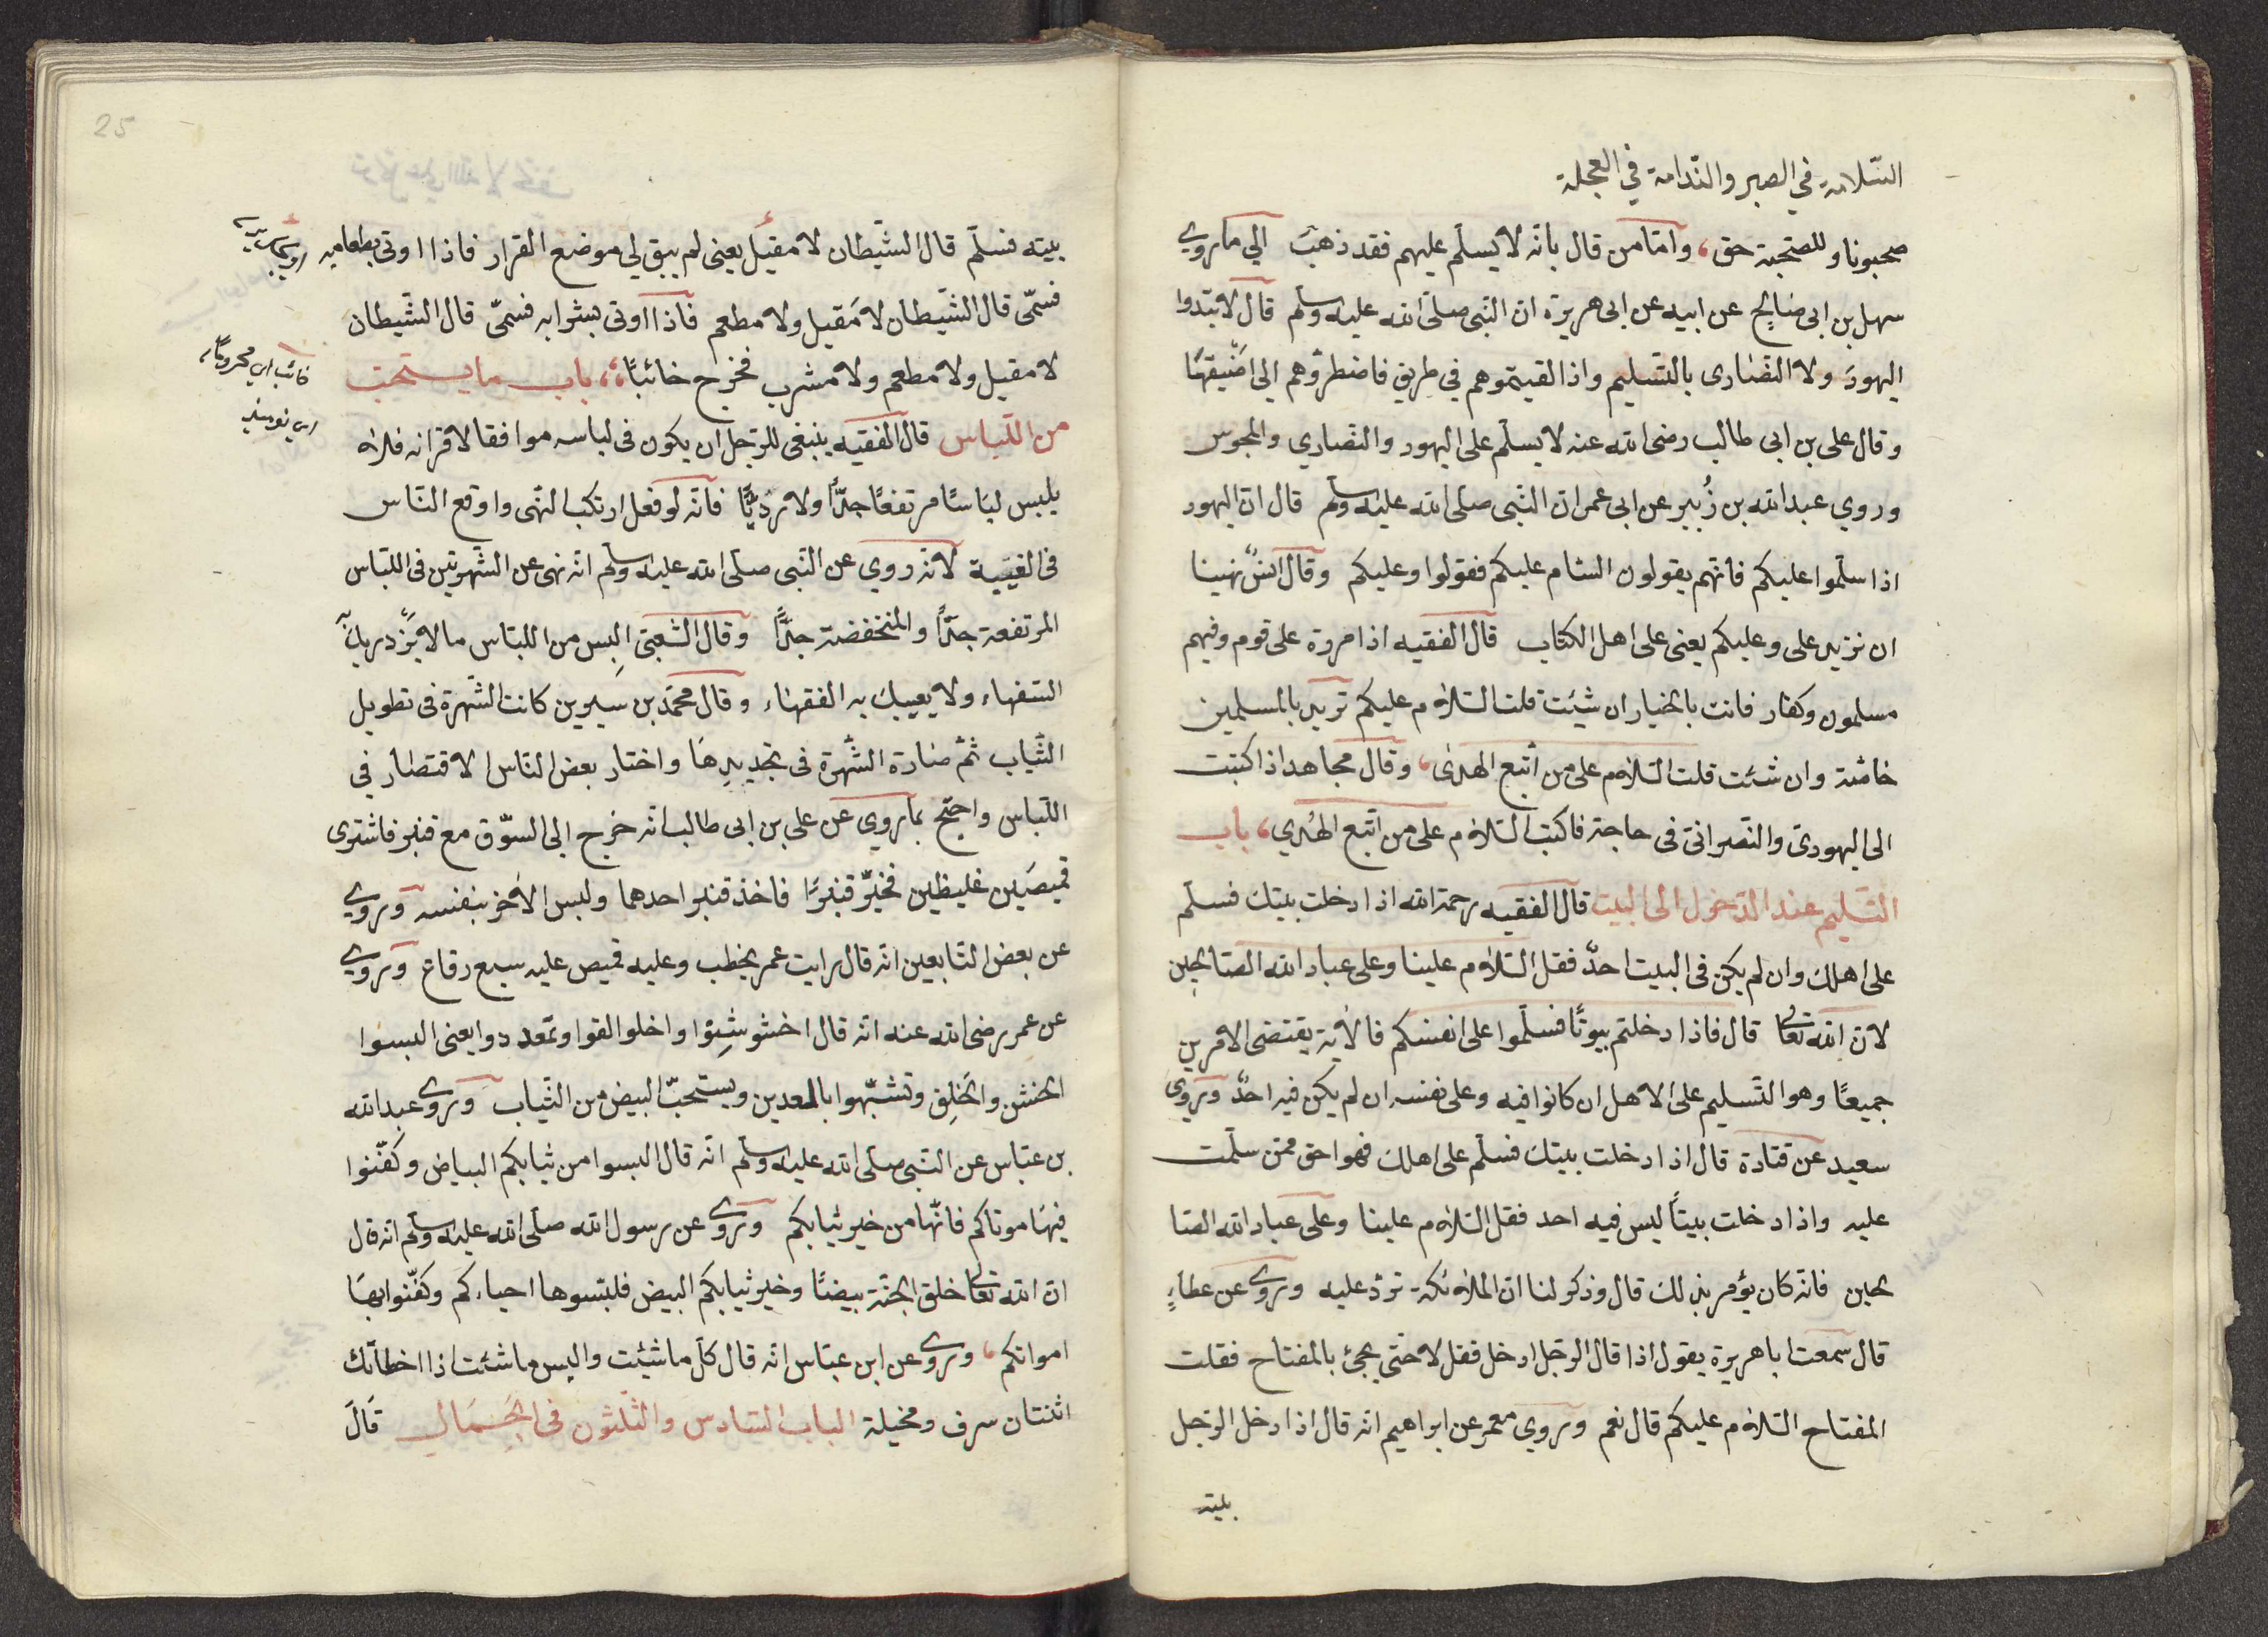 السّلامة في الصبر والنّدامة في العجلة
صحبونا وللصّحبة حق، وامّا من قال بانّه لا يسلّم عليهم فقد ذهبَ الي ما روي
سهل بن ابى صَالِح عن ابيه عن ابى هريرة ان النّبى صلّى الله عليه وسلم قال لا تبتدوا
اليهودَ ولا النّصَارى بالتّسليم واذا لقيتموهم في طريق فاضطرّوهم الى اضيقهَا
وقال على بن ابى طالب رضى الله عنه لا يسلّم على اليهود والنّصاري والمجوس
وروي عبد الله بن زُبير عن ابى عمر انّ النّبى صلى الله عليه وسلم قال انّ اليهود
اذا سلّموا عليكم فانّهم يقولون السّام عليكم فقولوا وعليكم وقال انسٌ نهينا
ان نزيد على وعليكم يعنى على اهل الكتاب قال الفقيه اذا مررة على قوم وفيهم
مسلمون وكفار فانت بالخيار ان شيَت قلت السّلام عليكم تريد بالمسلمين
خاصّة وان شئت قلت السّلام على من اتّبع الهدٰى، وقال مجاهد اذا كتبت
الى اليهودىّ والنّصرانىّ في حاجة فاكتب السّلام على من اتّبع الهُدي، باب
التّسليم عند الدّخول الى البيت قال الفقيه رحمة الله اذا دخلت بيتك فسلّم
على اهلك وان لم يكن فى البيت احدٌ فقل السّلام علينا وعلى عباد الله الصّالحين
لانّ الله تعالى قال فاذا دخلتم بيوتًا فسلّموا على انفسكم فالآية يقتضى الامرين
جميعًا وهو التّسليم على الاهل ان كانوا فيه وعلى نفسه ان لم يكن فيه احدٌ وروى
سعيد عن قتادة قال اذا دخلت بيتك فسلّم على اهلك فهو احق ممّن سلّمت
عليه واذا دخلت بيتًا ليس فيه احد فقل السّلام علينا وعلى عباد الله الصّا
لحين فانّه كان يؤمر بذلك قال وذكر لنا انّ الملائكة تردّ عليه وروى عن عطاءٍ
قال سمعت ابا هريرة يقول اذا قال الرّجل ادخل فقل لا حتّى يجئ بالمفتاح فقلت
المفتاح السّلام عليكم قال نعم وروي معمر عن ابراهيم انه قال اذا دخل الرّجل
بيته
25
بيته فسلّم قال الشّيطان لا مقيل يعنى لم يبق لي موضع القرار فاذا اوتى بطعامه
فسمّى قال الشّيطان لا مَقيل ولا مطعم فاذا اوتى بشرابه فسمّىّ قال الشّيطان
لا مقيل ولا مطعم ولا مشرب فخرج خائبًا، باب ما يستحبّ
من اللّباس قال الفقيه ينبغى للرّجل ان يكون فى لباسه موافقا لاقرانه فلاٰ
يلبس لبَاسًا مرتفعًا جدًّا ولا رَدِيًّا فانّه لو فعل ارتكب النّهى واوقع النّاس
فى الغيبة لانّه روي عن النّبى صلّى الله عليه وسلّم انّه نهى عن الشّهرتين فى اللّباس
المرتفعة جدًّا والمنخفضة جدًّا وقال الشّعبىّ البس من اللّباس ما لا يزدريك
السّفهاء ولا يعيبك به الفقهٰاء وقال محمّد بن سيرين كانت الشّهرة فى تطويل
الثّياب ثمّ صَارة الشّهرة فى تجديدهَا واختار بعض النّاس الاقتصار في
اللّباس واحتجّ بما روي عن على بن ابى طالب انّه خرج الى السّوق مع قنبر فاشترى
قميصَين غليظين فخيّر قنبرًا فاخذ قنبر احدهما ولبس الآخر بنفسه وروي
عن بعض التّابعين انّه قال رايت عمر يخطب وعليه قميص عليه سبع رقاع وروي
عن عمر رضى الله عنه انّه قال اخشوشِنوا واخلولقوا وتمعددوا يعنى البسوا
الخشن والخَلِق وتشبّهوا بالمعدين ويستحبّ البيض من الثّياب وروى عبد الله
بن عبّاس عن النّبى صلى الله عليه وسلّم انّه قال البسوا من ثيابكم البياض وكفّنوا
فيهَا موتاكم فانّها من خير ثيابكم وروى عن رسول الله صلّى الله عليه وسلّم انه قال
انّ الله تعالى خلق الجنّة بيضًا وخير ثيابكم البيض فليَبسوها احياءكم وكفّنوا بهَا
امواتكم، وروى عن ابن عبّاس انّه قال كل ما شئت والبس ما شئت اذا اخطاتك
اثنتان سرف ومخيلة الباب السّادس والثّلثون فى الجَمَال قَالَ